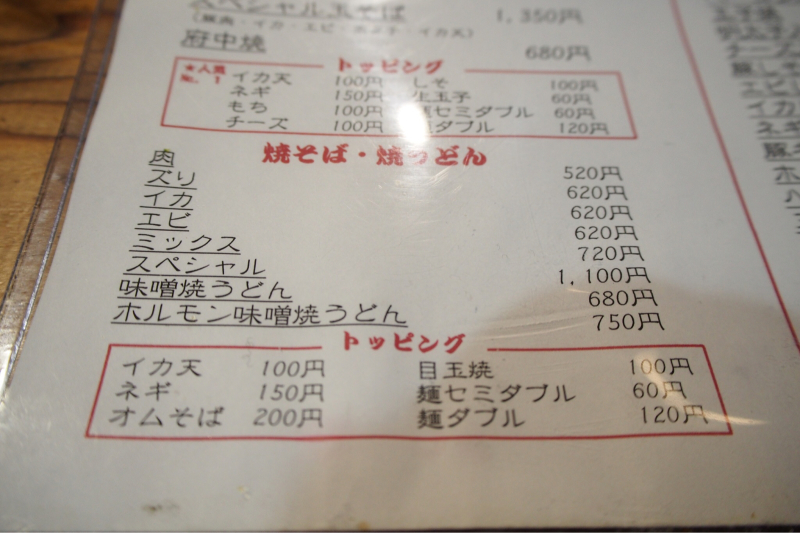 スペシャル玉そば 1,350円
(豚肉・イカ・エビ・ホタテ・イカ天)
府中焼 680円
トッピング
★人気No.1 イカ天 100円 しそ 100円
ネギ 150円 生玉子 60円
もち 100円 麺セミダブル 60円
チーズ 100円 ダブル 120円
焼そば・焼うどん
肉 520円
ズリ 620円
イカ 620円
エビ 620円
ミックス 720円
スペシャル 1,100円
味噌焼うどん 680円
ホルモン味噌焼うどん 750円
トッピング
イカ天 100円 目玉焼 100円
ネギ 150円 麺セミダブル 60円
オムそば 200円 麺ダブル 120円
チーズ
イカ
ネギ